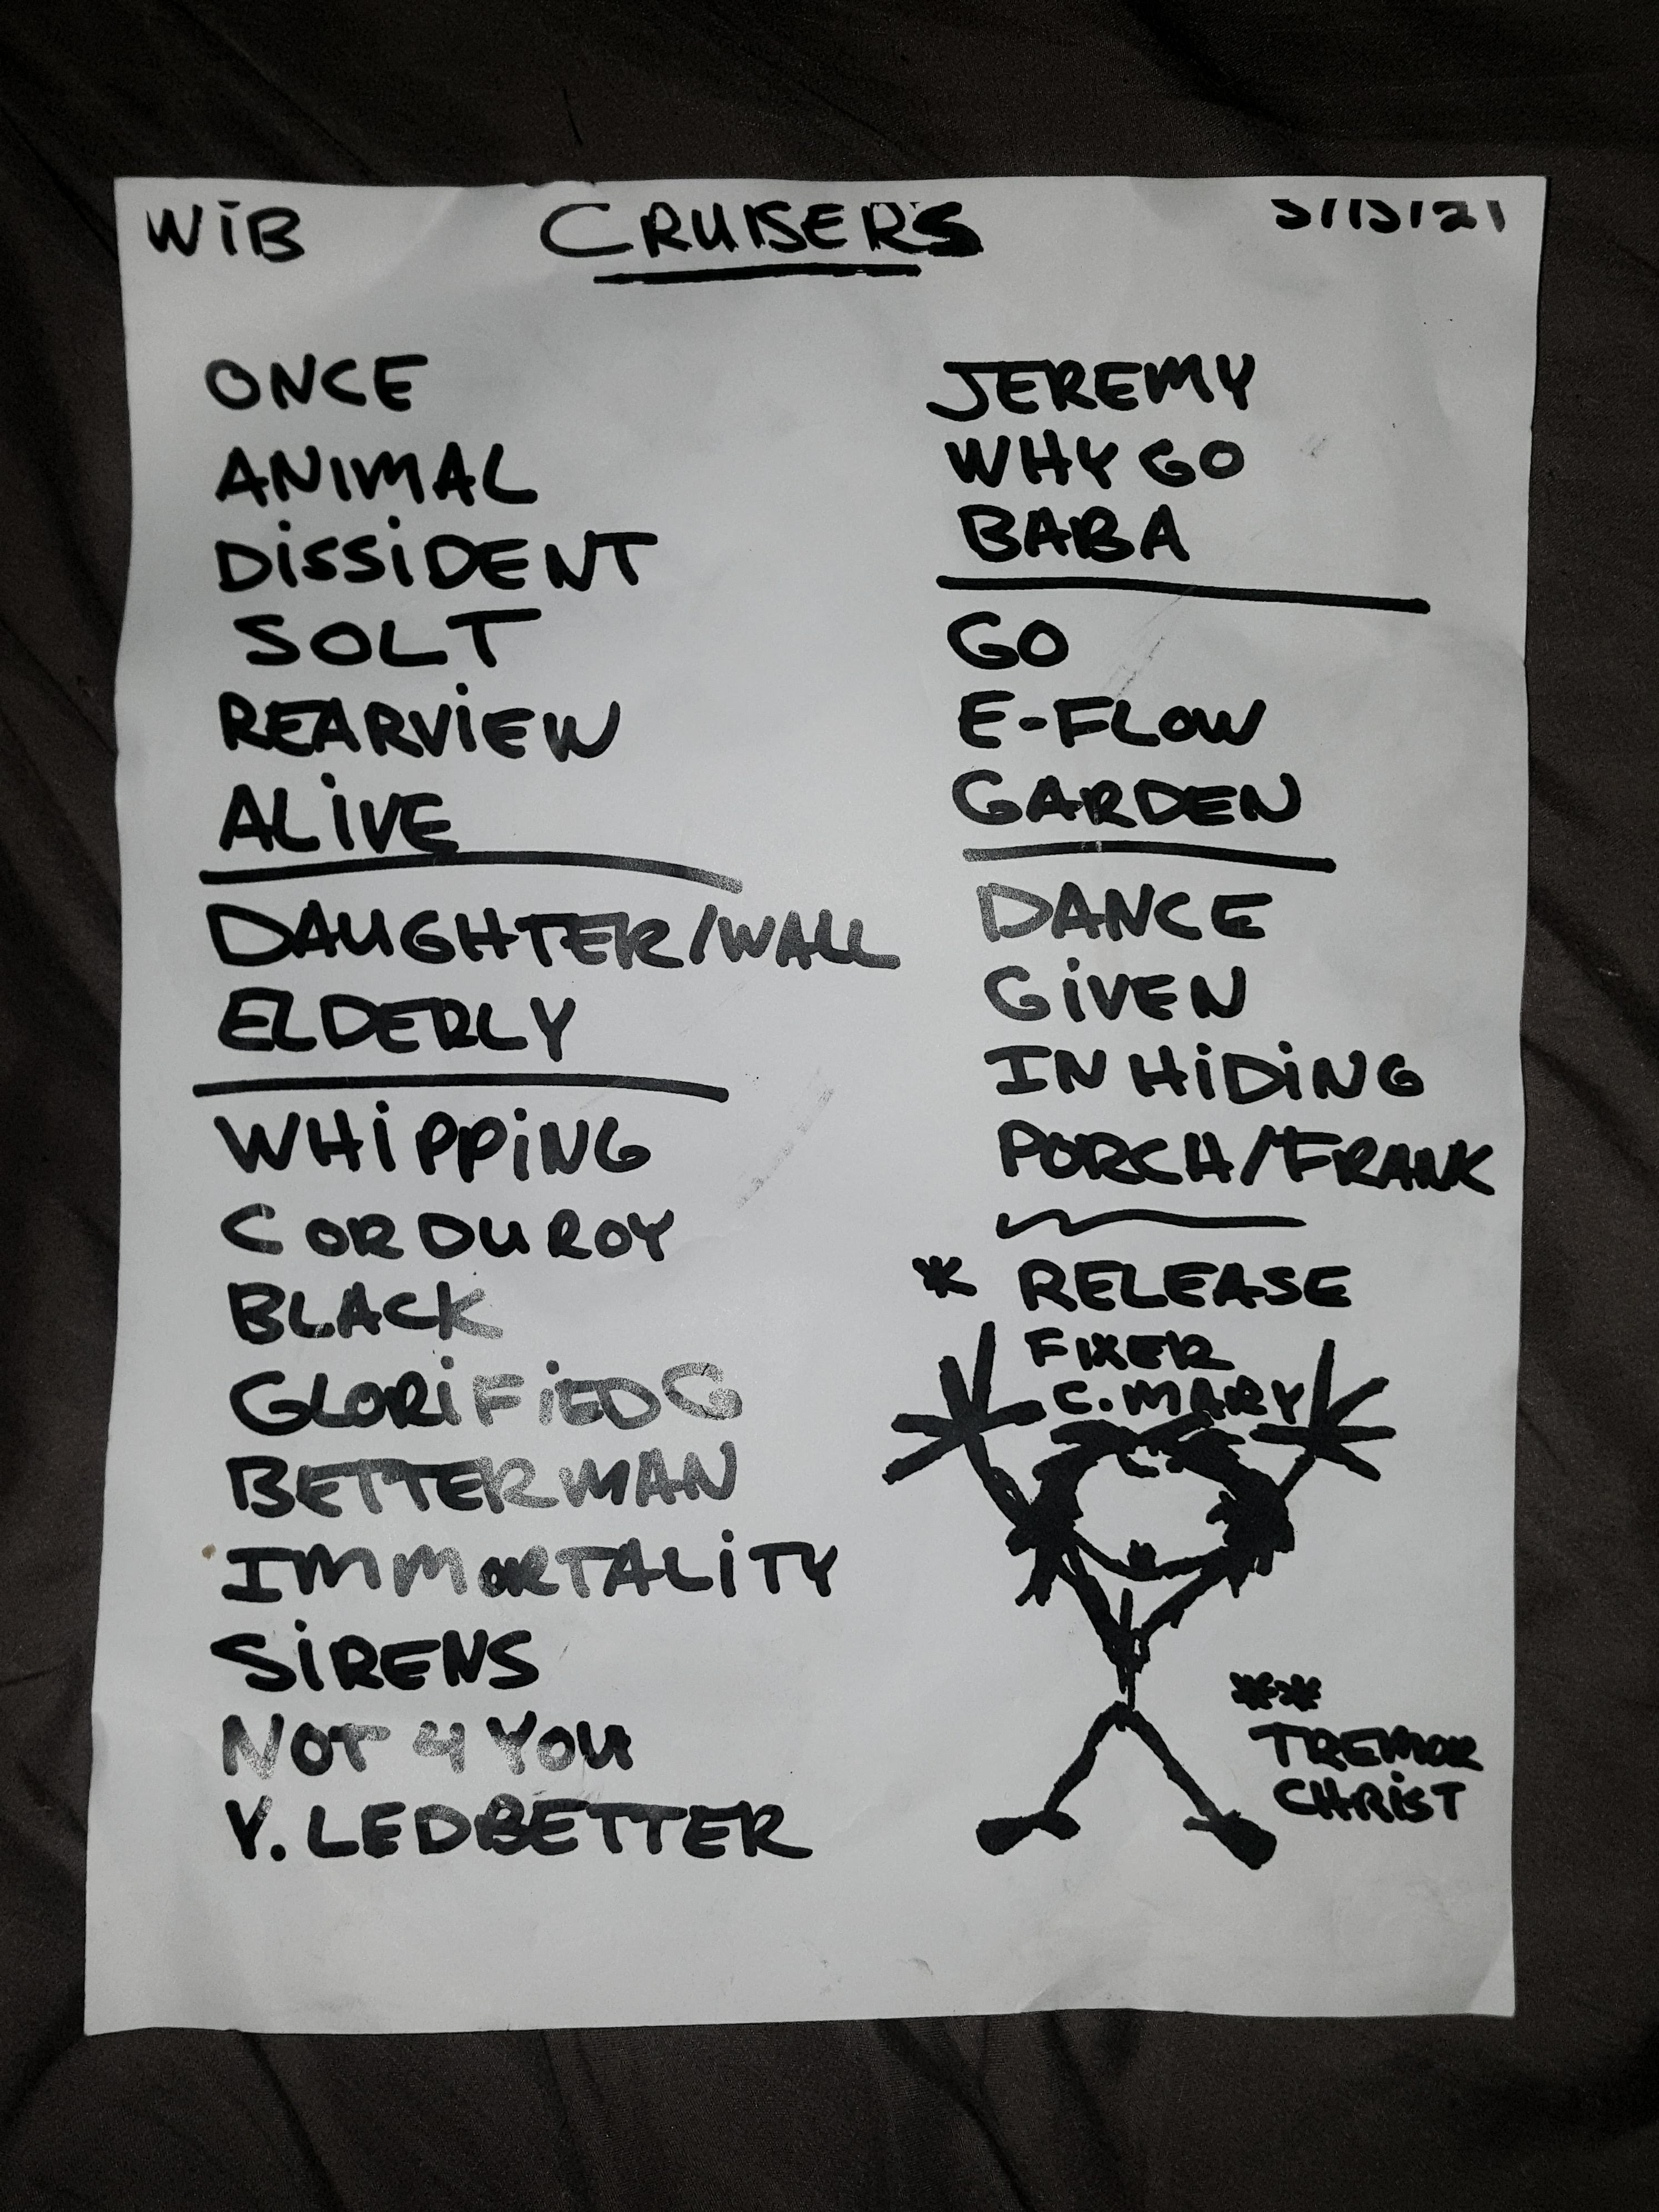 WiB
CRUISERS
ONCE
ANIMAL
DiSSiDENT
SOLT
REARViEW
ALiVE
DAUGHTER/WALL
ELDERLY
WHiPPiNG
CORDUROY
BLACK
GLORiFiED G
BETTERMAN
IMMORTALiTY
SiRENS
NOT 4 YOU
Y. LEDBETTER
JEREMY
WHY GO
BABA
GO
E-FLOW
GARDEN
DANCE
GiVEN
IN HiDiNG
PORCH/FRANK
* RELEASE
FIXER
C. MARY
**
TREMOR
CHRiST